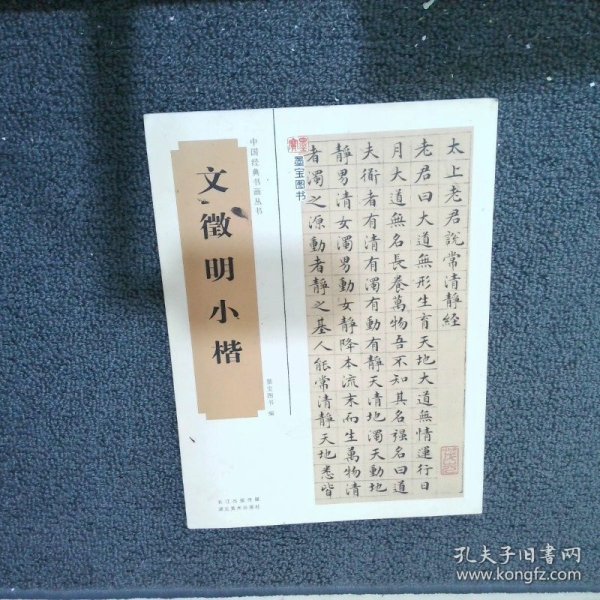 中国经典书画丛书
文徵明小楷
墨宝图书 编
长江出版传媒
湖北美术出版社
墨宝图书
太上老君說常清靜經
老君曰大道無形生育天地大道無情運行日
月大道無名長養萬物吾不知其名强名曰道
夫道者有清有濁有動有靜天清地濁天動地
靜男清女濁男動女靜降本流末而生萬物清
者濁之源動者靜之基人能常清靜天地悉皆
孔夫子旧书网
www.kongfz.com